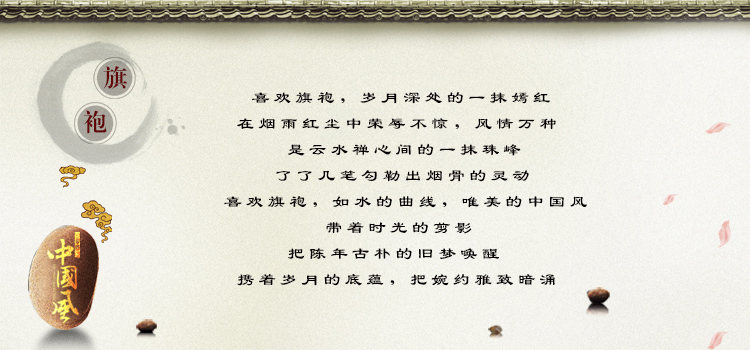 旗
袍
喜欢旗袍，岁月深处的一抹嫣红
在烟雨红尘中荣辱不惊，风情万种
是云水禅心间的一抹珠峰
了了几笔勾勒出烟骨的灵动
喜欢旗袍，如水的曲线，唯美的中国风
带着时光的剪影
把陈年古朴的旧梦唤醒
携着岁月的底蕴，把婉约雅致暗涌
中國風